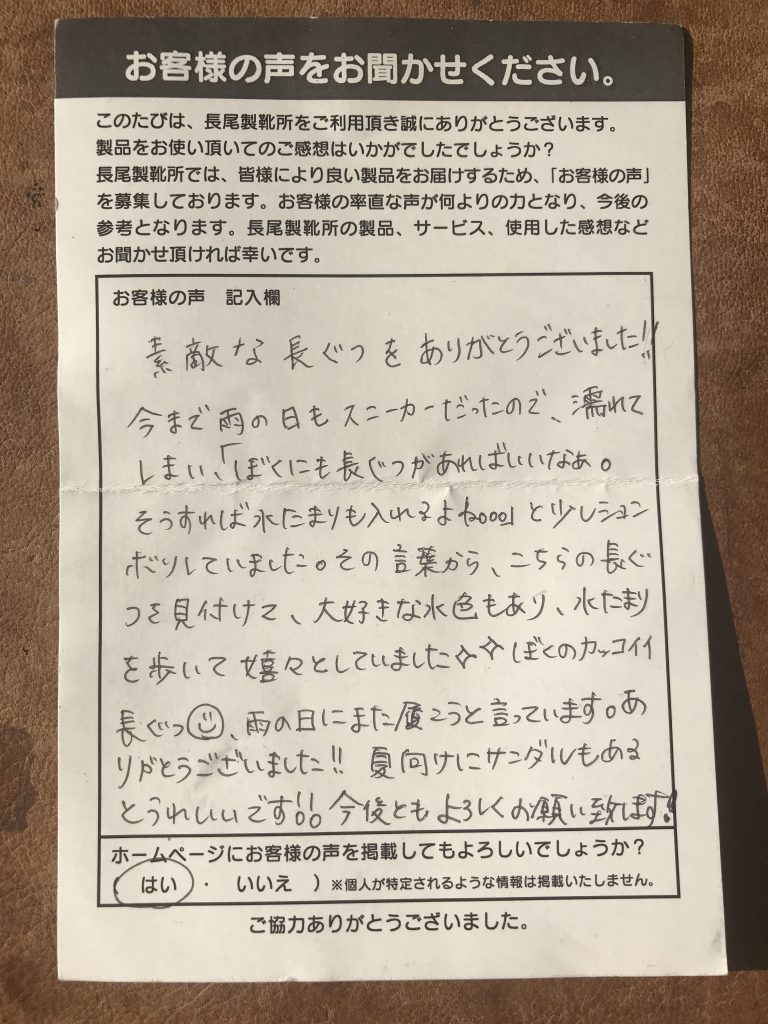 お客様の声をお聞かせください。
このたびは、長尾製靴所をご利用頂き誠にありがとうございます。
製品をお使い頂いてのご感想はいかがでしたでしょうか?
長尾製靴所では、皆様により良い製品をお届けするため、「お客様の声」
を募集しております。お客様の率直な声が何よりの力となり、今後の
参考となります。長尾製靴所の製品、サービス、使用した感想など
お聞かせ頂ければ幸いです。
お客様の声 記入欄
素敵な長ぐつをありがとうございました!!
今まで雨の日もスニーカーだったので、濡れて
しまい、「ぼくにも長ぐつがあればいいなぁ。
そうすれば水たまりも入れるよね。。。」と少しション
ボリしていました。その言葉から、こちらの長ぐ
つを見付けて、大好きな水色もあり、水たまり
を歩いて嬉々としていました✧✧ぼくのカッコイイ
長ぐつ☺、雨の日にまた履こうと言っています。あ
りがとうございました!! 夏向けにサンダルもある
とうれしいです!! 今後ともよろしくお願い致します!
ホームページにお客様の声を掲載してもよろしいでしょうか?
はい ・ いいえ )※個人が特定されるような情報は掲載いたしません。
ご協力ありがとうございました。